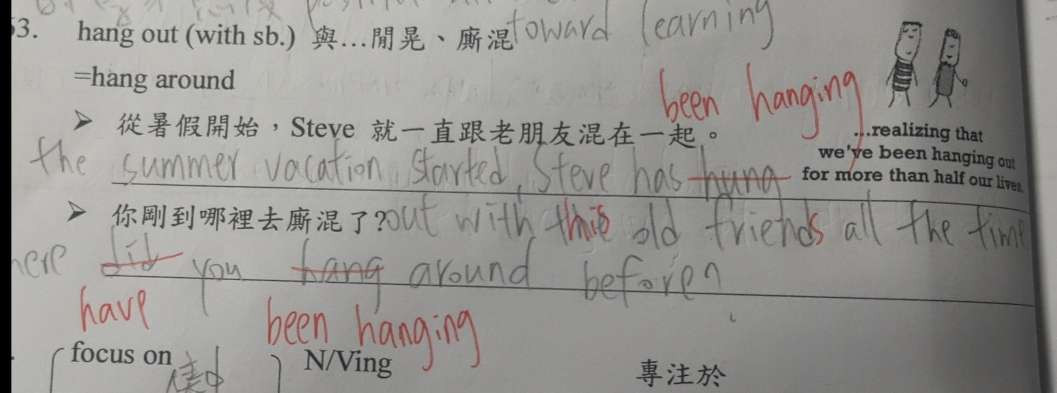 toward learning
53. hang out (with sb.) 與…閒晃、廝混
=hang around
been hanging
➤ 從暑假開始，Steve 就一直跟老朋友混在一起。
...realizing that
we've been hanging out
for more than half our lives.
the summer vacation started, Steve has hung
➤ 你剛到哪裡去廝混了?
out with his old friends all the time
here did you hang around before?
have been hanging
focus on N/Ving 專注於